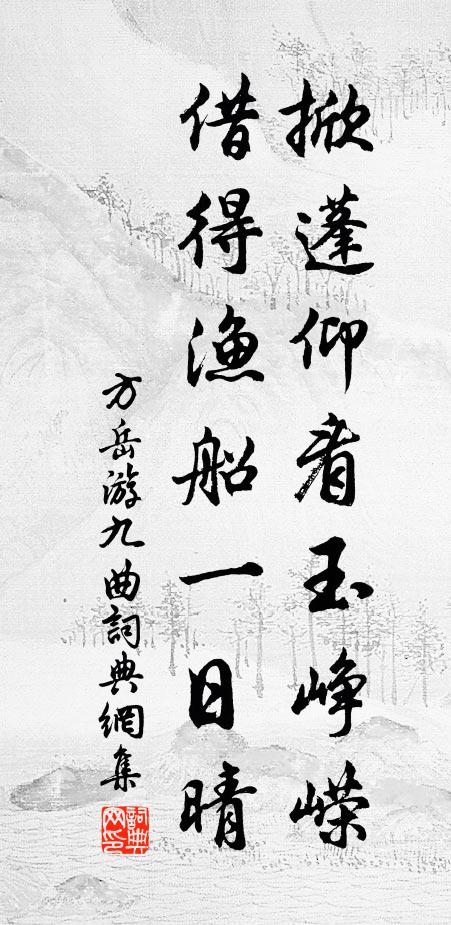 掀蓬仰看玉峥嵘
借得渔船一日晴
方岳游九曲詞典網集
詞典网印